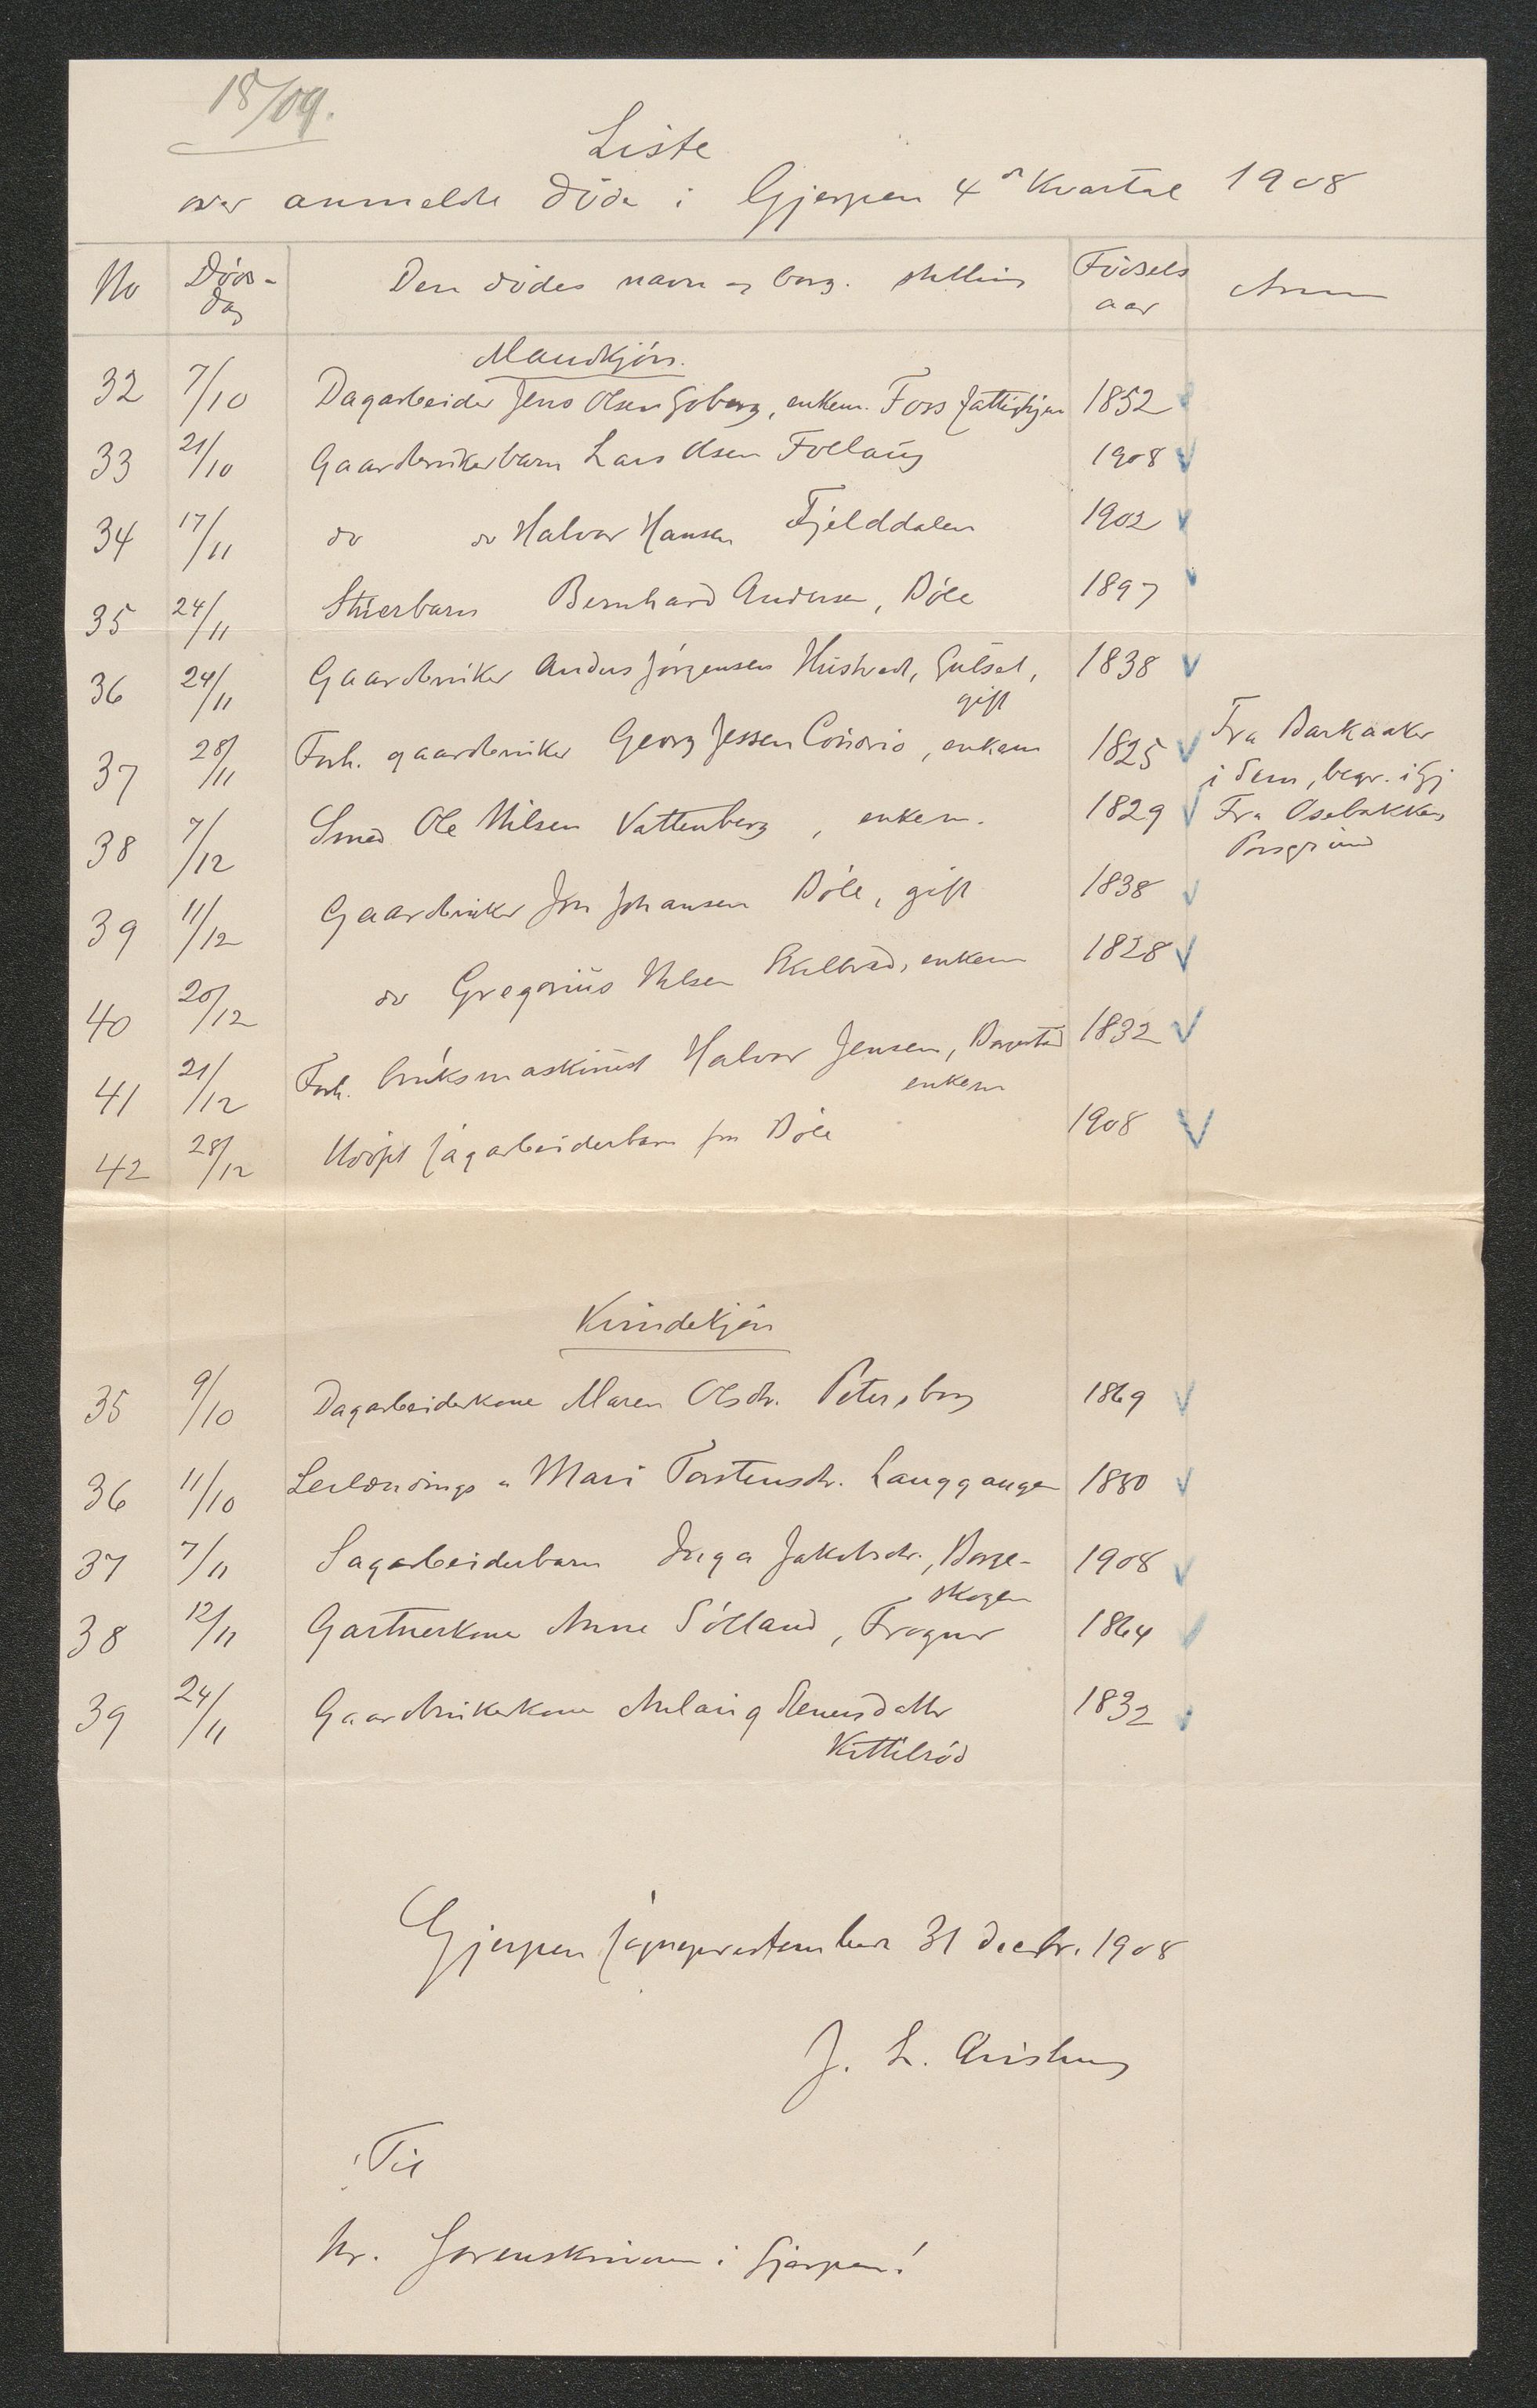 18/09.
Liste
over anmeldte døde i Gjerpen 4de Kvartal 1908
No Døds- Den dødes navn og borg. stilling Fødsels Anm
dag aar
Mandkjøn.
32 7/10 Dagarbeider Jens Olsen Goberg, enkem. Fors fattighjem 1852
33 21/10 Gaardbrukerbarn Lars Olsen Follaug 1908
34 17/11 do do Halvor Hansen Fjelddalen 1902
35 24/11 Bernhard Andersen, Bøle 1897
36 24/11 Gaardbruker Anders Jørgensen Hustvedt, Gulset, 1838
gift
37 28/11 Forh. gaardbruker Georg Jessen Coudrio, enkem 1825 Fra Barkaaker
i Sem, begr. i Gj
38 7/12 Smed Ole Nilsen Vattenberg, enkem. 1829 Fra Osebakken,
Porsgrund
39 11/12 Gaardbruker Jon Johansen Bøle, gift 1838
40 20/12 do Gregorius Nilsen, enkem 1828
41 21/12 Forh. bruksmaskinist Halvor Jensen, Borgestad 1832
enkem
42 28/12 Udøpt sagarbeiderbarn fra Bøle 1908
Kvindekjøn
35 9/10 Dagarbeiderkone Maren Olsdtr. Petersborg 1869
36 11/10 Leilændings " Mari Torstensdtr. Langgangen 1880
37 7/11 Sagarbeiderbarn Inga Jakobsdtr., Borge- 1908
skogen
38 12/11 Gartnerkone Anne Sölland, Frogner 1864
39 24/11 Gaardbrukerkone Anlaug 1832
Kittilrød
Gjerpen sogneprestembede 31 decbr. 1908
J. L.
Til
hr. Sorenskriveren i Gjerpen!